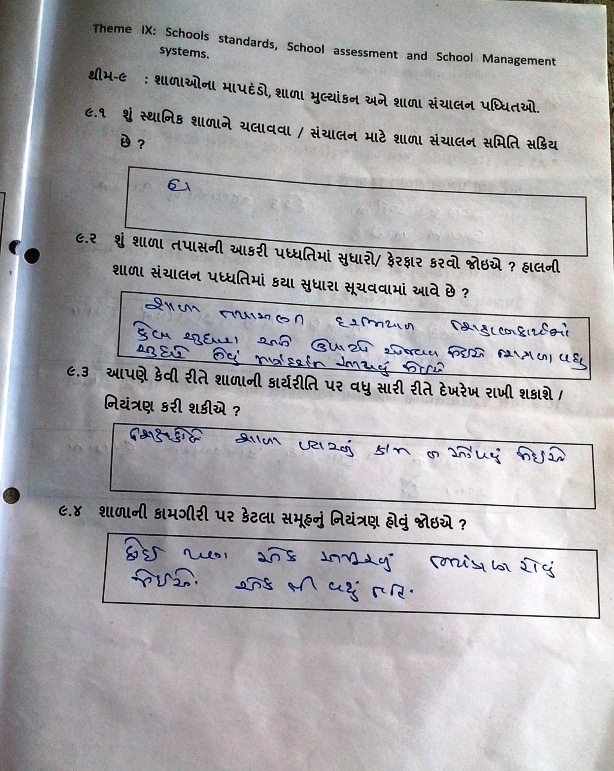 Theme IX: Schools standards, School assessment and School Management
systems.
થીમ-૯ : શાળાઓના માપદંડો, શાળા મુલ્યાંકન અને શાળા સંચાલન પધ્ધિતઓ.
૯.૧ શું સ્થાનિક શાળાને ચલાવવા / સંચાલન માટે શાળા સંચાલન સમિતિ સક્રિય
છે ?
હા
૯.૨ શું શાળા તપાસની આકરી પધ્ધતિમાં સુધારો/ ફેરફાર કરવો જોઇએ ? હાલની
શાળા સંચાલન પધ્ધતિમાં કયા સુધારા સૂચવવામાં આવે છે ?
શાળા તપાસણી દરમ્યાન શિક્ષણકાર્યમાં
કેવા સુધારા
માર્ગદર્શન આપવું જોઇએ
૯.૩ આપણે કેવી રીતે શાળાની કાર્યરીતિ પર વધુ સારી રીતે દેખરેખ રાખી શકાશે /
નિયંત્રણ કરી શકીએ ?
શાળા કામ ન સોંપવું જોઇએ
૯.૪ શાળાની કામગીરી પર કેટલા સમૂહનું નિયંત્રણ હોવું જોઇએ ?
કોઇ પણ એક સમૂહનું નિયંત્રણ હોવું
જોઇએ. એક થી વધું નહિ.